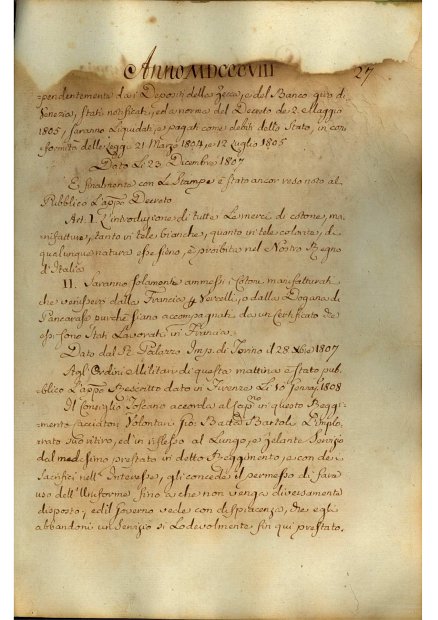 Anno MDCCCVIII 27
pendentemente da i Depositi della Zecca, e del Banco giro di
Venezia, stati notificati, ed a norma del Decreto de 2 Maggio
1805, saranno Liquidati, e pagati come debiti dello Stato, in con
formità delle Leggi 21 Marzo 1804, e 12 Luglio 1805
Dato Li 23 Dicembre 1807
E finalmente con Le Stampe è stato ancor reso noto al
Pubblico L'appo Decreto
Art. I. L'introduzione di tutte Le merci di cotone, ma,
nifatture, tanto in tele bianche, quanto in tele colorite, di
qualunque natura esse sieno, è proibita nel Nostro Regno
d'Italia
II. Saranno solamente ammessi i Cotoni manufatturati
che venissero dalla Francia p Vercelli, o dalla Dogana di
purche siano accompagnati da un Certificato che
essi sono stati Lavorati in Francia
Dato dal Rl. Palazzo Imp. di Torino il 28 Xbre 1807
Agl'Ordini Militari di questa mattina è stato pub,
blico L'appo Rescritto dato in Firenze Li 10 1808
Il Consiglio Toscano accorda al Capno in questo Reggi,
mento Cacciatori Volontari Gio: Batta Bartoli L'implo,
rato suo ritiro, ed in riflesso al Lungo, e zelante Servizio
dal medesimo prestato in detto Reggimento, e con dei
Sacrifici nell'Interesse, gli concede il permesso di fare
uso dell'Uniforme fino a che non venga diversamente
disposto, ed il Governo vede con dispiacenza, che egli
abbandoni un Servizio sì Lodevolmente fin qui prestato,